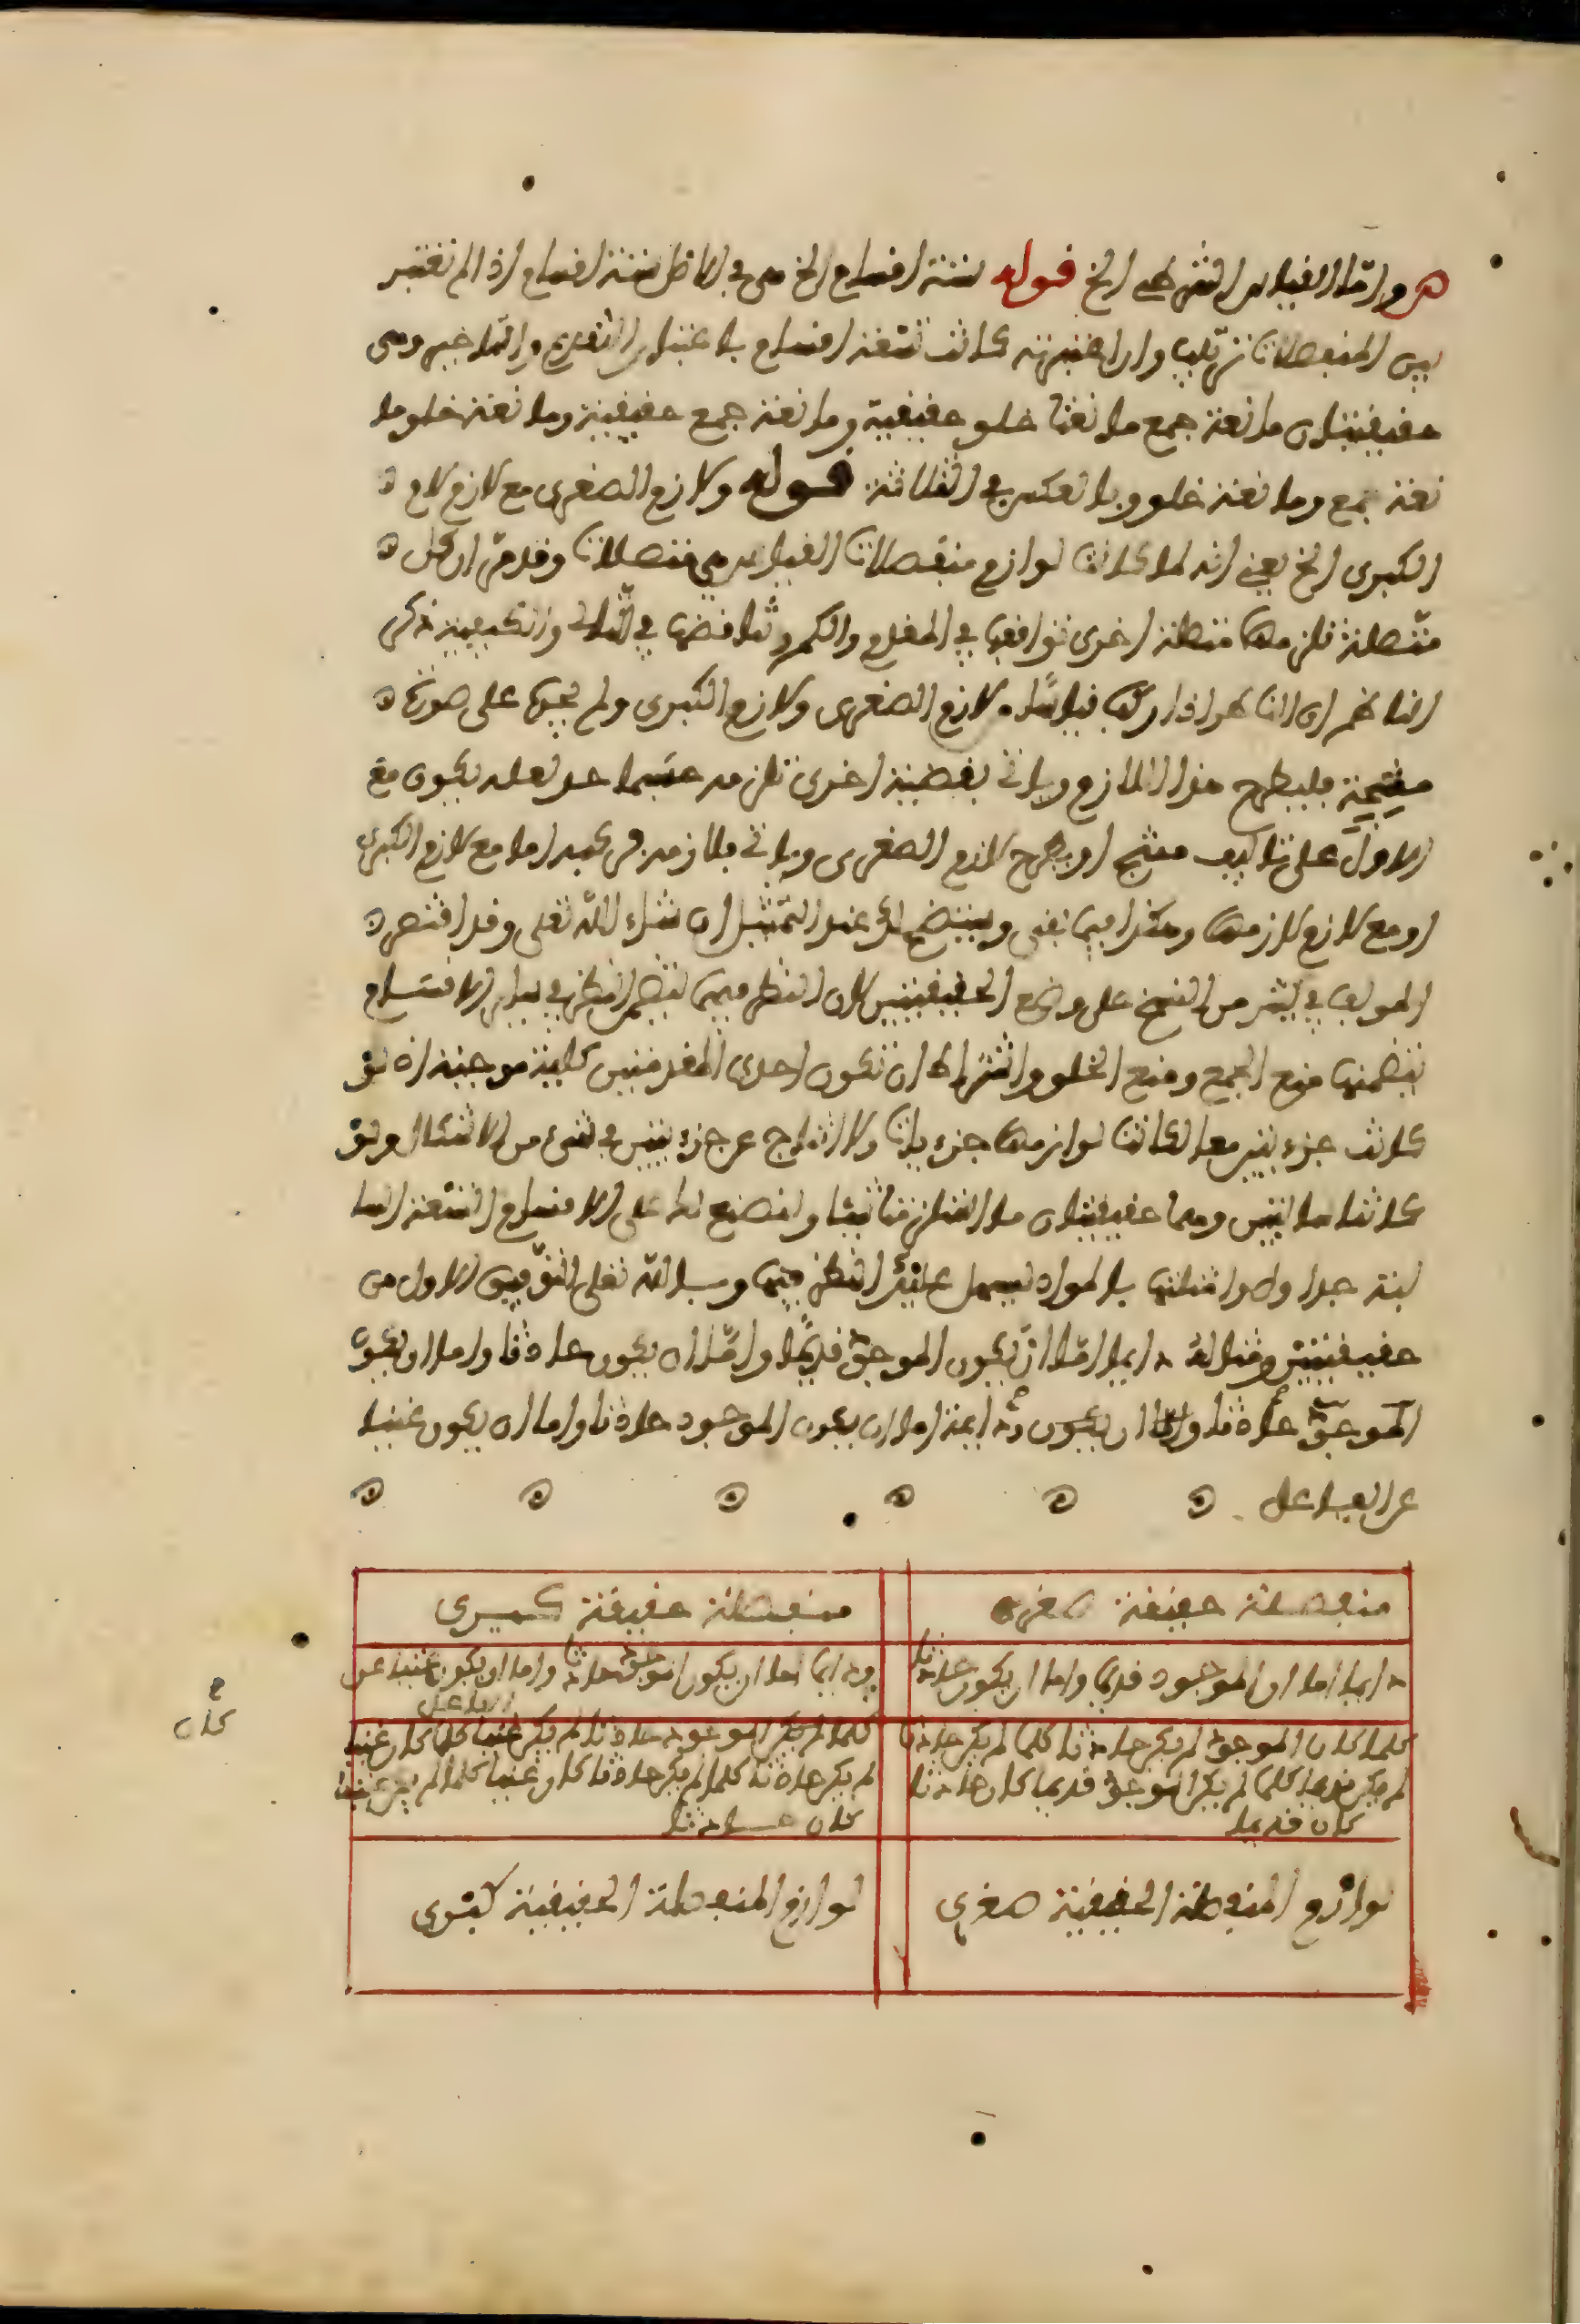 ص واما القياس الشرطي الخ قوله ستة اقسام الخ هي في الاصل ستة اقسام اذا لم تعتبر
بين المنفصلات ترتيب وان اعتبرته كانت تسعة اقسام باعتبار التقديم والتاخير وهي
حقيقيتان مانعة جمع مانعتا خلو حقيقية ومانعة جمع حقيقية ومانعة خلو ما
نعة جمع ومانعة خلو وبالعكس في الثلاثة قوله ولازم الصغرى مع لازم لام
الكبرى الخ يعني انه لما كانت لوازم منفصلات القياس هي متصلات وقد مر ان كل
متصلة تلزمها متصلة اخرى توافقها في المقدم والكم وتناقضها في التالي والكيفية ذكر
الناظم ان الناظر اذا ركب قياسا من لازم الصغرى ولازم الكبرى ولم يجئ على صورة
منتجة فليطرح هذا اللازم ويات بقضية اخرى تلزمه حسبما لعله يكون مع
الاول على تاليف منتج او يطرح لازم الصغرى ويات بلازمه اما مع لازم الكبرى
او مع لازم لازمها وهكذا فيما بقي ويتضح لك عند التمثيل ان شاء الله تعلى وقد اقتصر
المولف في كثير من النسخ على وضع الحقيقيتين لان النظر فيهما يتضمن النظر في سائر الاقسام
لتضمنها منع الجمع ومنع الخلو واشتراط ان تكون احدى المقدمتين كلية موجبة اذ لو
كانت جزءيتين معا لكانت لوازمها جزءيات ولا انتاج عن جزءيتين في شيء من الاشكال ولو
كانتا سالبتين وهما حقيقيتان ما استلزمتا شيئا ولنضع لك على الاقسام التسعة السا
لبة جدا ولها امثلتها بالمواد ليسهل عليك النظر فيها وبالله تعلى التوفيق الاول من
حقيقيتين ومثاله دايما اما ان يكون الموجود قديما واما ان يكون حادثا واما ان يكون
الموجود حادثا واما ان يكون دايما اما ان يكون الموجود حادثا واما ان يكون غنيا
عن الفاعل
منفصلة حقيقة صغرى
منفصلة حقيقة كبرى
دايما اما ان الموجود قديما واما ان يكون حادثا
ودايما اما ان يكون الموجود حادثا واما ان يكون غنيا عن
الفاعل
كلما كان الموجود لم يكن حادثا كلما لم يكن حادثا
لم يكن قديما كلما لم يكن الموجود قديما كان حادثا
كان قديما
كلما لم يكن الموجود حادثا لم يكن غنيا كلما كان غنيا
لم يكن حادثا كلما لم يكن حادثا كان غنيا كلما لم يكن غنيا
كان حادثا
كان
لوازم المنفصلة الحقيقية صغرى
لوازم المنفصلة الحقيقية كبرى